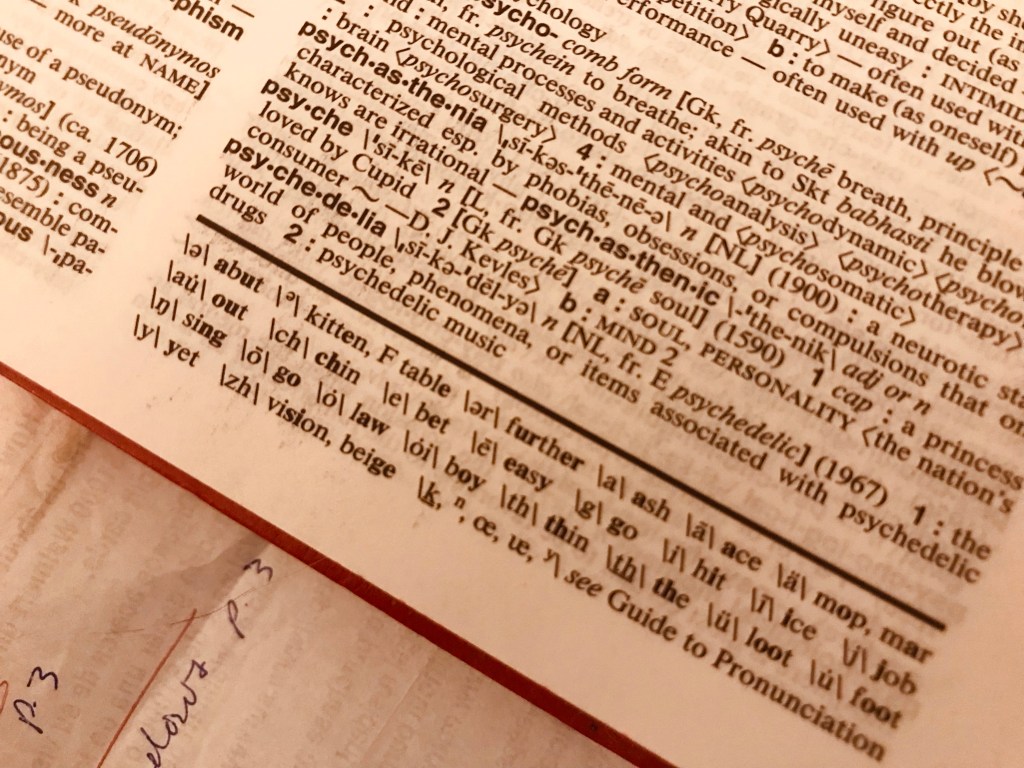 ephism
k pseudōnymos
— more at NAME]
use of a pseudonym;
nym
ymos] (ca. 1706)
: being a pseu-
ous·ness n
1875) : com-
esemble pa-
ous \ˌpa-
ectly the
figure out (as
myself and decided
gically uneasy : INTIMID
ry Quarry> — often used wit
petition> b : to make (as oneself)
erformance — often used with up <~
chology
psycho- comb form [Gk, fr. psychē breath, principle
fr. psychein to breathe; akin to Skt babhasti he blow
: mental processes and activities <psychodynamic> <psycho
: psychological methods <psychoanalysis> <psychotherapy>
: brain <psychosurgery> 4 : mental and <psychosomatic>
psych·as·the·nia \ˌsī-kəs-ˈthē-nē-ə\ n [NL] (1900) : a neurotic sta
characterized esp. by phobias, obsessions, or compulsions that on
knows are irrational — psych·as·then·ic \-ˈthe-nik\ adj or n
psy·che \ˈsī-kē\ n [L, fr. Gk psychē soul] (1590) 1 cap : a princess
loved by Cupid 2 [Gk psychē] a : SOUL, PERSONALITY <the nation's
consumer ~ —D. J. Kevles> b : MIND 2
psy·che·de·lia \ˌsī-kə-ˈdēl-yə\ n [NL, fr. E psychedelic] (1967) 1 : the
world of people, phenomena, or items associated with psychedelic
drugs 2 : psychedelic music
\ə\ abut \ᵊ\ kitten, F table \ər\ further \a\ ash \ā\ ace \ä\ mop, mar
\au̇\ out \ch\ chin \e\ bet \ē\ easy \g\ go \i\ hit \ī\ ice \j\ job
\ŋ\ sing \ō\ go \ȯ\ law \ȯi\ boy \th\ thin \t͟h\ the \ü\ loot \u̇\ foot
\y\ yet \zh\ vision, beige \k̲, ⁿ, œ, ue, ʸ\ see Guide to Pronunciation
p. 3
p. 3